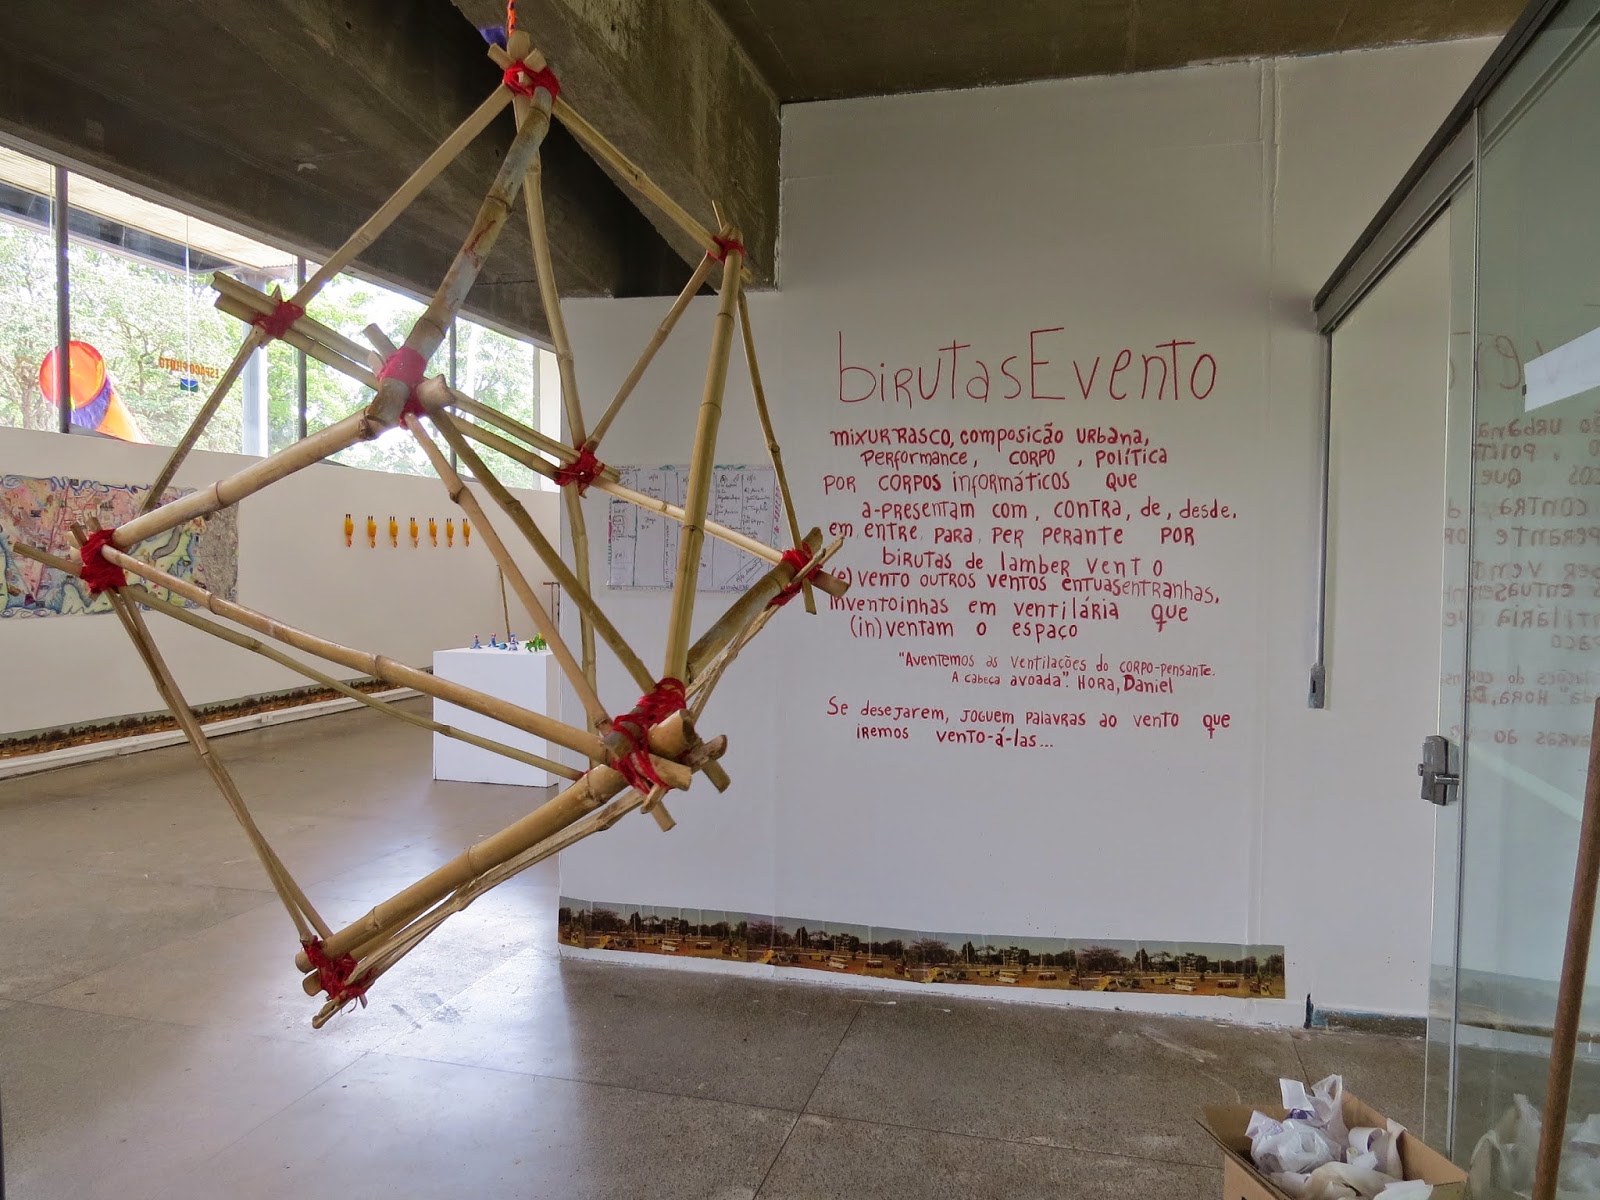 birutasEvento
mixurrasco, composição urbana,
performance, corpo, política
por corpos informáticos que
a-presentam com, contra, de, desde.
em, entre, para, per perante por
birutas de lamber vento
(e)vento outros ventos entuasentranhas,
inventoinhas em ventilária que
(in)ventam o espaço
"Aventemos as ventilações do corpo-pensante.
A cabeça avoada". Hora, Daniel
Se desejarem, joguem palavras ao vento que
iremos vento-á-las...
ESPAÇO PILOTO